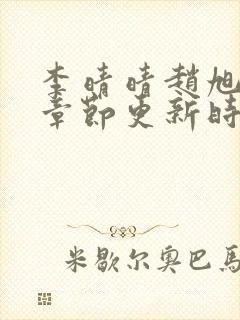 李晴晴趙旭
章節更新時
米歇尔奥巴馬